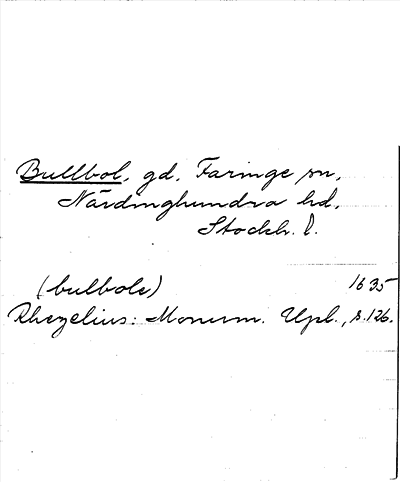 Bullbol, gd, Faringe sn,
Närdinghundra hd,
Stockh. l.
(bulbole) 1635
Rhezelius: Monum. Upl., s.126.